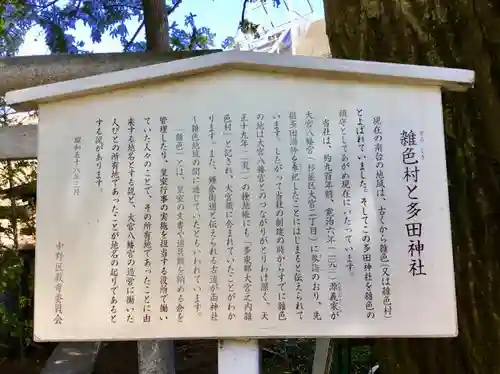 雑色村と多田神社
ぞう しき
現在の南台の地域は、古くから雑色(又は雑色村)
とよばれていました。そしてこの多田神社を雑色の
鎮守としてあがめ現在にいたっています。
当社は、約九百年前、寛治六年(一〇九二)源義家が
大宮八幡宮(杉並区大宮二丁目)に参詣のおり、先
祖多田満仲を奉祀したことにはじまると伝えられて
います。したがって当社の創建の時からすでに雑色
の地は大宮八幡宮とのつながりがとりわけ深く、天
正十九年(一五九一)の検地帳にも「多東郡大宮之内雑
色村」と記され、大宮郷に含まれていたことがわか
ります。また、鎌倉街道と伝えられる古道が当神社
〜雑色地域の間に通じていたともいわれています。
「雑色」とは、皇室の文書や道具類を納める倉を
管理したり、皇室行事の実施を担当する役所で働い
ていた人々のことで、その所有地であったことに由
来する地名とする説と、大宮八幡宮の造営に働いた
人びとの所有地であったことが地名の起りであると
する説があります。
昭和五十八年三月
中野区教育委員会